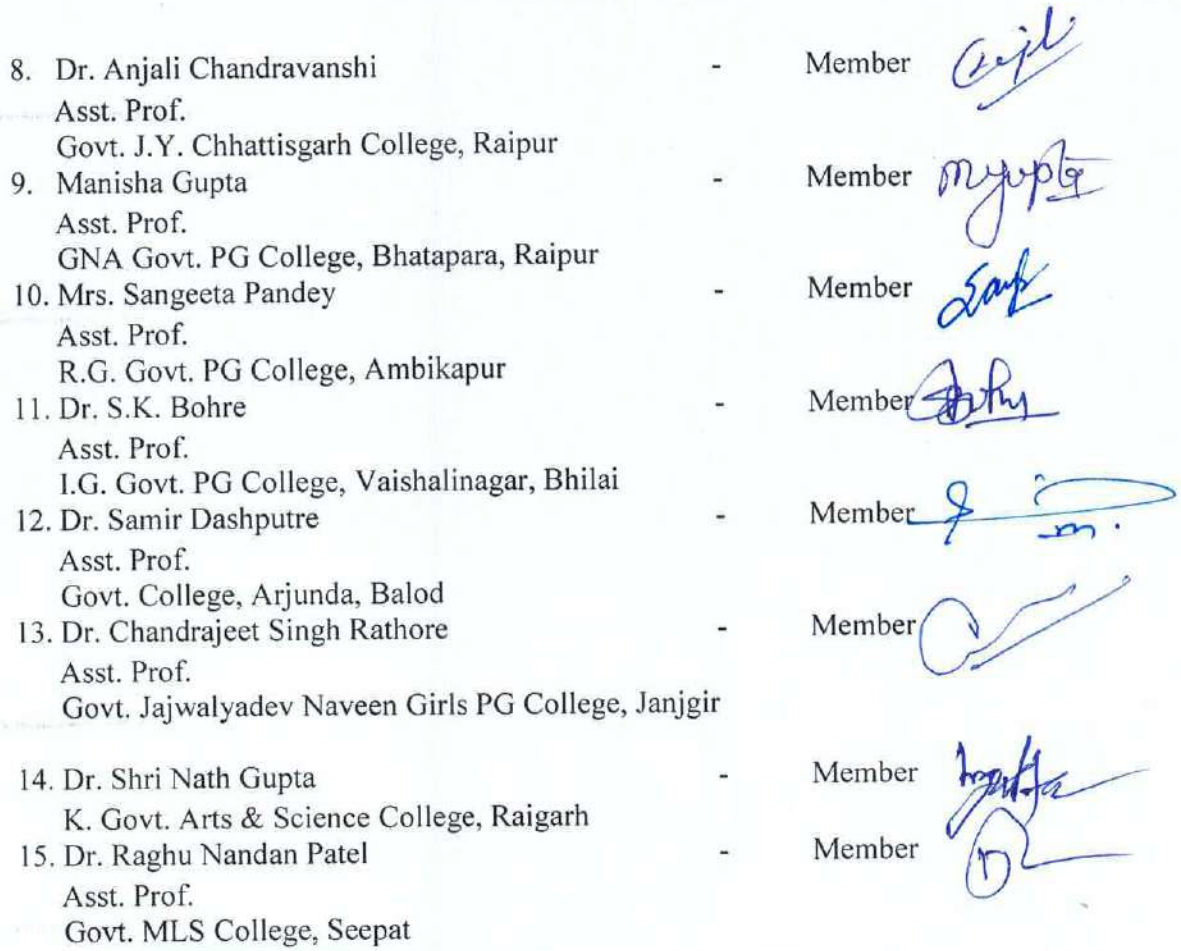 8. Dr. Anjali Chandravanshi - Member
Asst. Prof.
Govt. J.Y. Chhattisgarh College, Raipur
9. Manisha Gupta - Member Mgupta
Asst. Prof.
GNA Govt. PG College, Bhatapara, Raipur
10. Mrs. Sangeeta Pandey - Member
Asst. Prof.
R.G. Govt. PG College, Ambikapur
11. Dr. S.K. Bohre - Member
Asst. Prof.
I.G. Govt. PG College, Vaishalinagar, Bhilai
12. Dr. Samir Dashputre - Member
Asst. Prof.
Govt. College, Arjunda, Balod
13. Dr. Chandrajeet Singh Rathore - Member
Asst. Prof.
Govt. Jajwalyadev Naveen Girls PG College, Janjgir
14. Dr. Shri Nath Gupta - Member
K. Govt. Arts & Science College, Raigarh
15. Dr. Raghu Nandan Patel - Member
Asst. Prof.
Govt. MLS College, Seepat